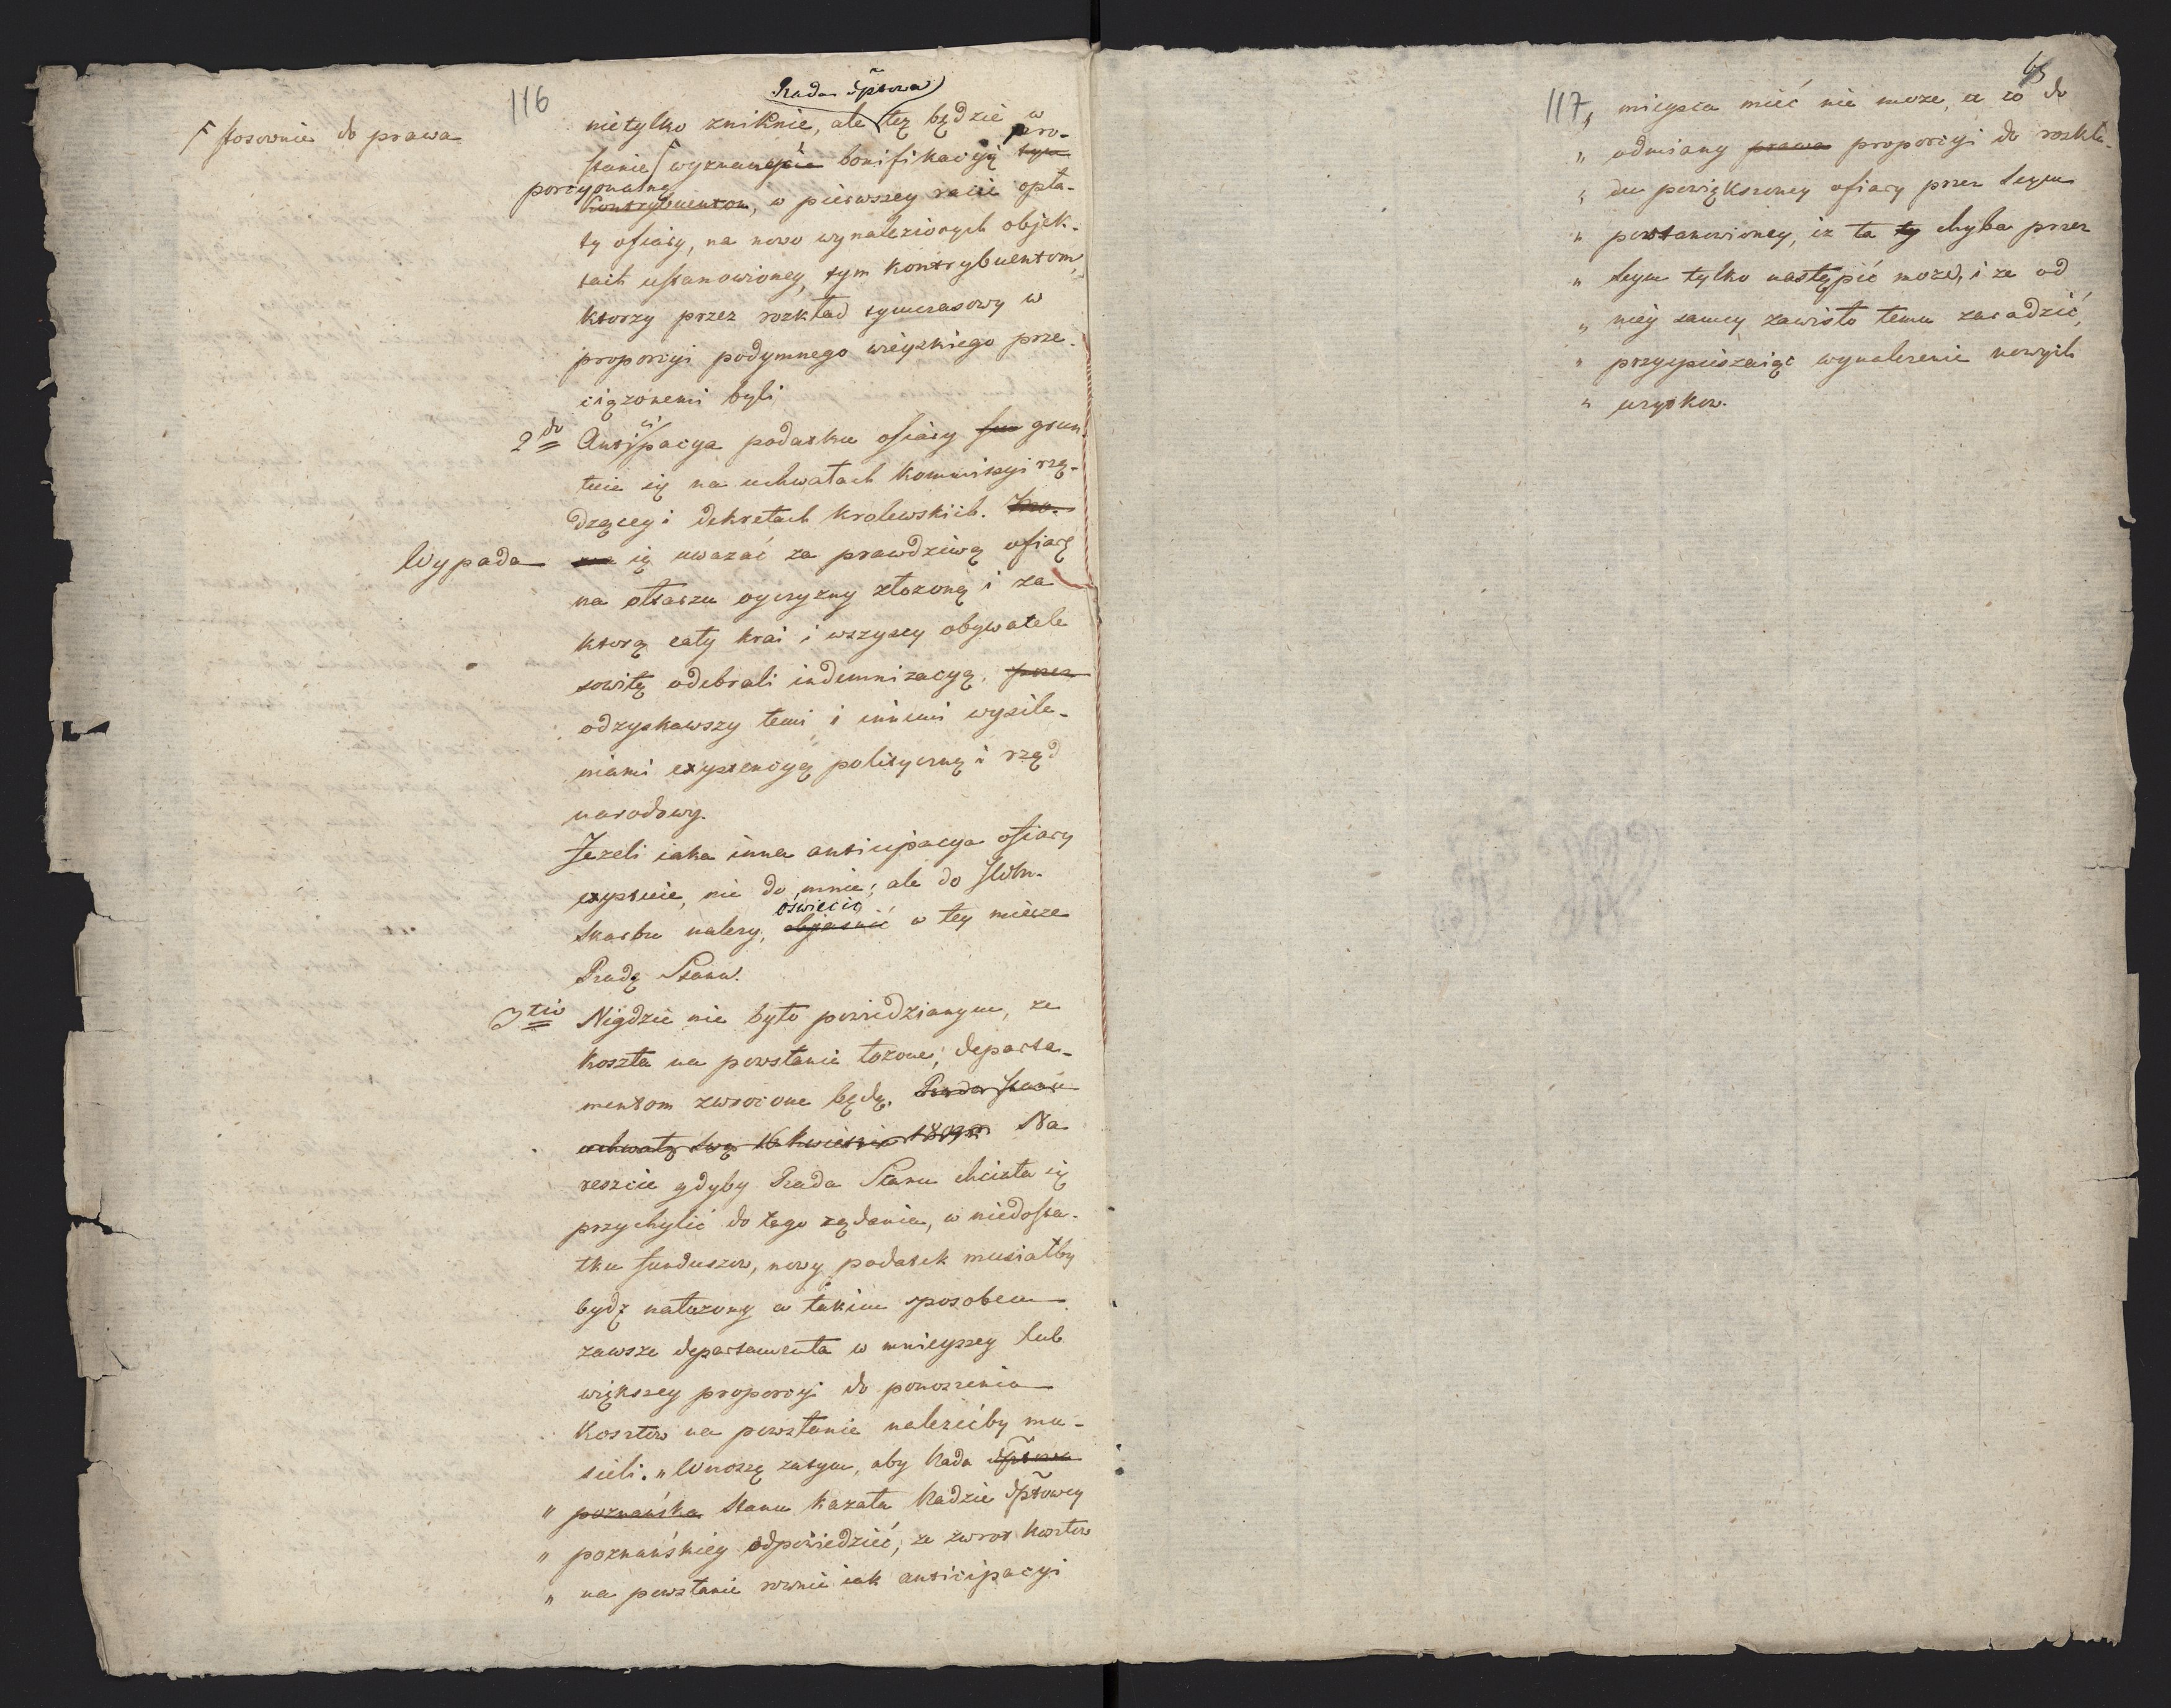 116
Rada dptowa
Ⱶ stosownie do prawa
nietylko zniknie, ale też będzie w
stanie wyznaczyć bonifikacyą tym pro-
porcyonalną
Kontrybuentom, w pierwszey racie opła-
ty ofiary, na nowo wynalezionych objek-
tach ustanowioney, tym kontrybuentom,
ktorzy przez rozkład tymczasowy w
proporcyi podymnego wieyskiego prze-
ciązonemi byli
2do Anticipacya podatku ofiary grun-
tuie się na uchwałach Kommissyi rzą-
dzącey i dekretach krolewskich.
Wypada ią uwazać za prawdziwą ofiarę
na ołtarzu oyczyzny złozoną i za
ktorą cały krai i wszyscy obywatele
sowitę odebrali indemnizacyą, przez
odzyskawszy temi i innemi wysile-
niami exystencyą polityczną i rząd
narodowy.
Jezeli iaka inna anticipacya ofiary
exystuie, nie do mnie, ale do JWMn.
oświecić
Skarbu nalezy, objasnić w tey mierze
Radę Stanu.
3tio Nigdzie nie było powiedzianym, ze
koszta na powstanie łozone, departa-
mentom zwrocone będą. Rada Stanu
uchwałą swą 16 kwietnia 1809 r. Na
reszcie gdyby Rada Stanu chciała się
przychylić do tego ządania, w niedosta-
tku funduszow, nowy podatek musiałby
bydz nałozony a takim sposobem
zawsze departamenta w mnieyszey lub
większey proporcyi do ponoszenia
kosztow na powstanie nalezićby mu-
sieli. „Wnoszę zatym, aby Rada dptowa
„ poznańska Stanu kazała Radzie dptowey
„ poznańskiey odpowiedzieć, ze zwrot kosztow
„ na powstanie rownie iak anticipacyi
65
117
„ mieysca mieć nie moze, a co do
„ odmiany prawa proporcyi do rozkła-
„ du powiększoney ofiary przez Seym
„ postanowioney, iz ta ty chyba przez
„ Seym tylko nastąpić moze, i ze od
„ niey samey zawisło temu zaradzić,
„ przyspieszaiąc wynalezienie nowych
„ uzyskow.